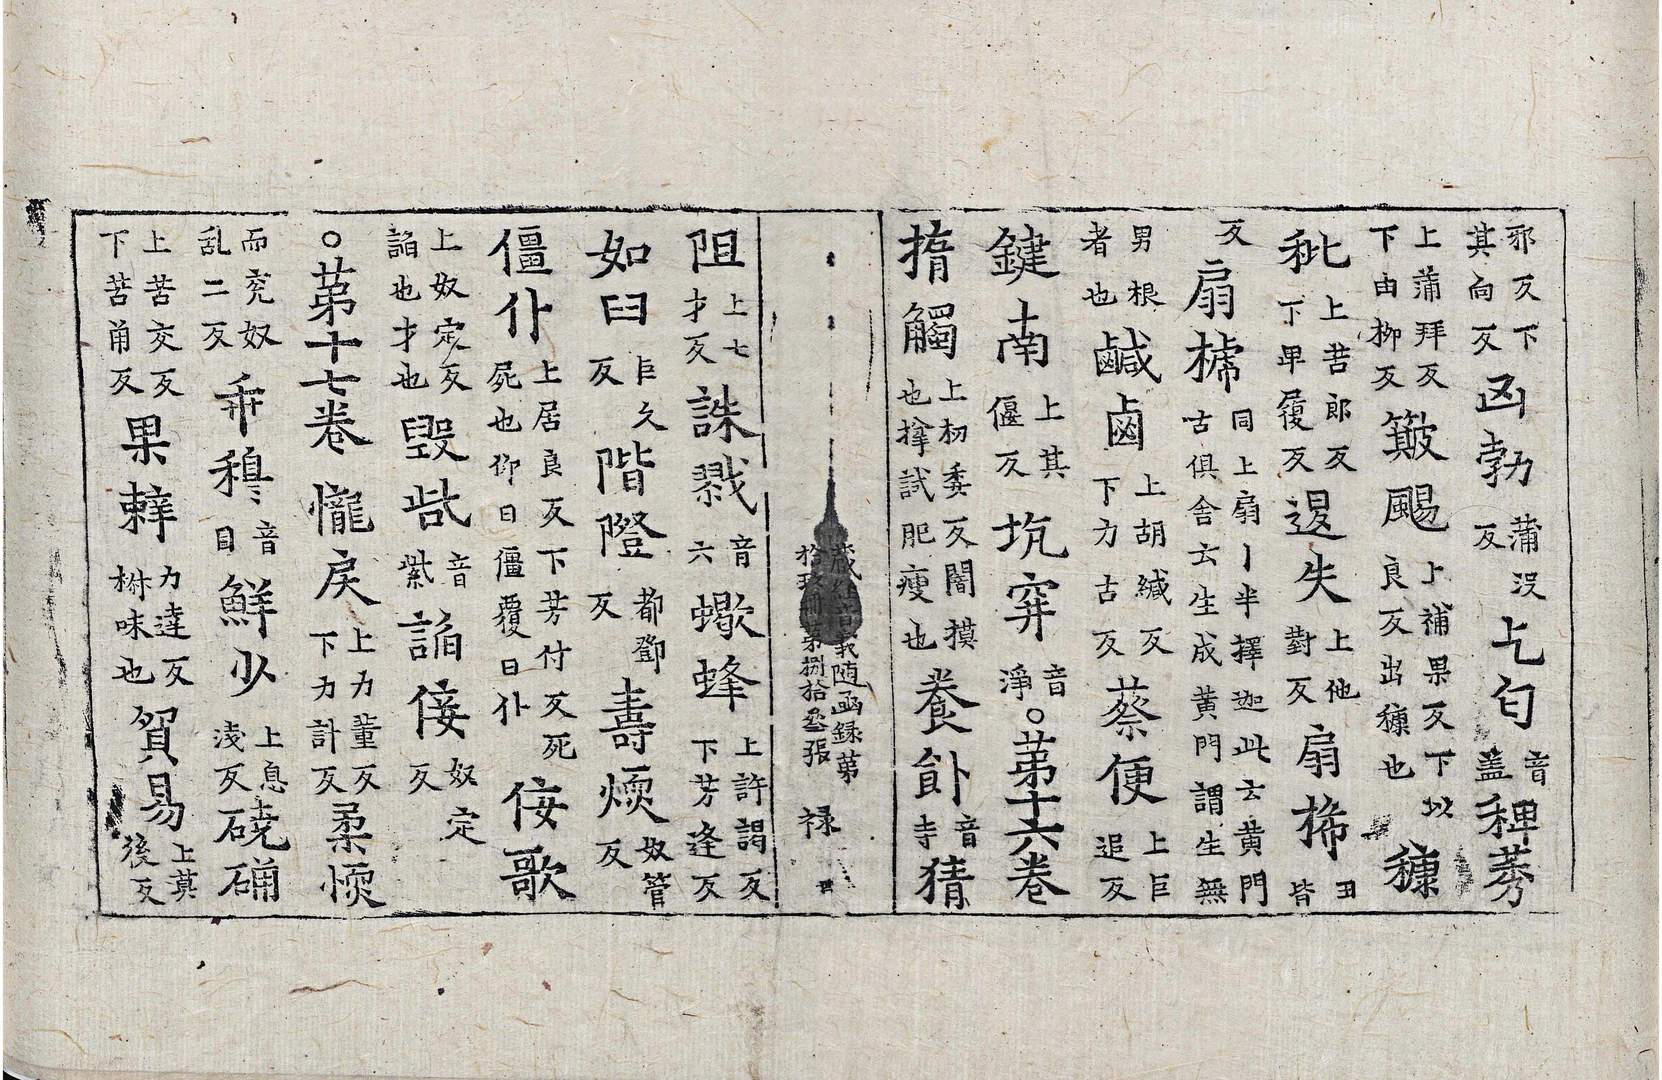 邪反下其向反凶勃蒲没反乞匂音盖稗莠
上蒲拜反下由柳反簸颺上補果反下以良反出穅也穅
秕上苦郎反下卑履反退失上他對反扇㮈丑皆
反扇㯉同上扇丨半擇迦此云黄門古俱舍云生成黄門謂生無
男根者也鹹鹵上胡緘反下力古反蔡便上巨追反
鍵南上其偃反坑穽音淨○第十六卷
揣觸上初委反闇摸也撑試肥瘦也養飤音寺猜
藏經音義随函録第拾玖冊第捌拾叁張 禄
阻上七才反誅戮音六蠍蜂上許謁反下芳逢反
如臼巨久反階隥都鄧反壽煗奴管反
僵仆上居良反下芳付反死屍也仰曰僵覆曰仆佞歌
上奴定反諂也才也毀呰音紫諂佞奴定反
○第十七卷㦬戾上力董反下力計反柔煗
而兖奴乱二反 穆音目鮮少上息淺反磽确
上苦交反下苦角反果辢力達反 味也貿易上莫後反